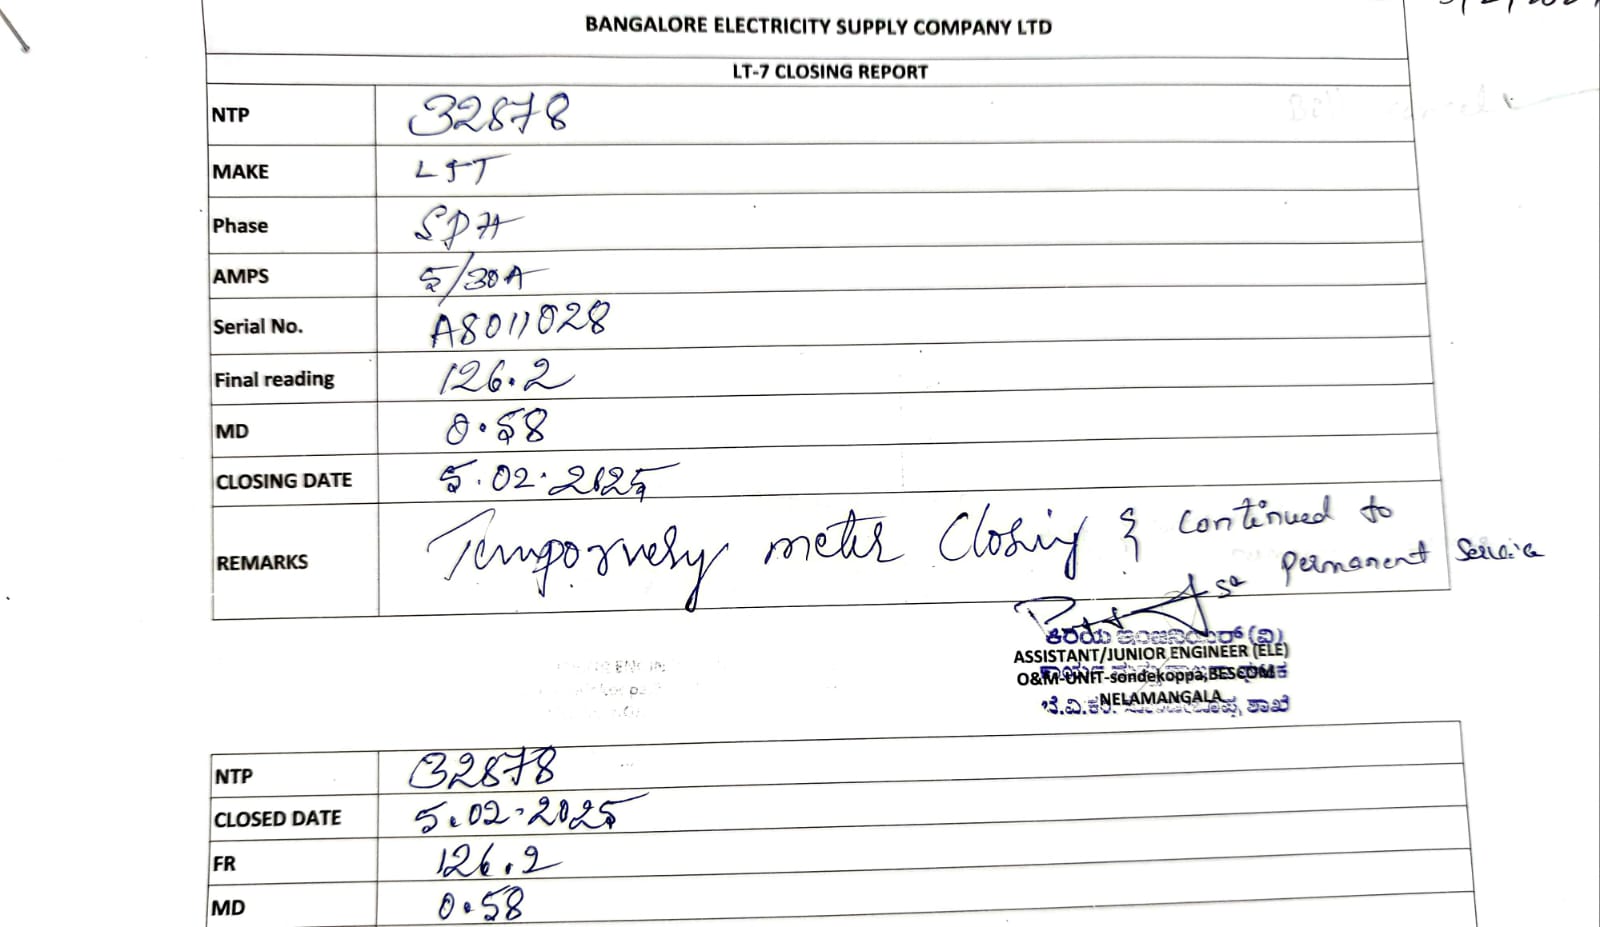 BANGALORE ELECTRICITY SUPPLY COMPANY LTD
LT-7 CLOSING REPORT
NTP 32878
MAKE L&T
Phase SPH
AMPS 5/30A
Serial No. A8011028
Final reading 126.2
MD 0.58
CLOSING DATE 5.02.2025
REMARKS Temporvery meter Closing & Continued to
permanent Service
ಕಿರಿಯ ಇಂಜಿನಿಯರ್ (ವಿ)
ASSISTANT/JUNIOR ENGINEER (ELE)
O&M-UNIT-sondekoppa,BESCOM
NELAMANGALA
ಬೆ.ವಿ.ಕಂ. ಶಾಖೆ
NTP 32878
CLOSED DATE 5.02.2025
FR 126.2
MD 0.58